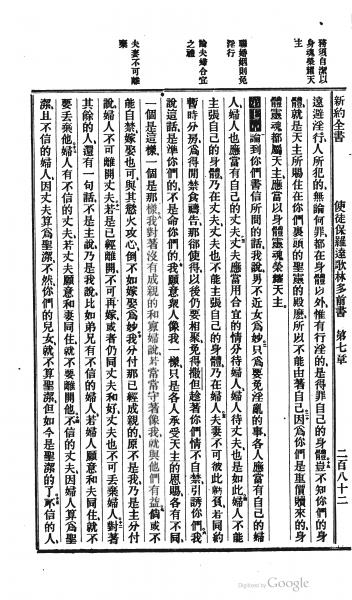 新約全書 使徒保羅達歌林多前書 第七章 二百八十二
務須自潔以
身魂榮耀天
主
遠避淫行人所犯的無論何罪都在身體以外惟有行淫的是得罪自己的身體豈不知你們的身
體就是天主所賜住在你們裏頭的聖靈的殿麽所以不能由著自己因爲你們是重價贖來的身
體靈魂都屬天主應當以身體靈魂榮耀天主
聯婚姻則免
淫行
第七章論到你們書信所問的話我說男不近女爲妙只爲要免淫亂的事各人應當有自己的婦
人婦人也應當有自己的丈夫丈夫應當用合宜的情分待婦人婦人待丈夫也是如此婦人不能
論夫婦合宜
之禮
主張自己的身體乃在丈夫丈夫也不能主張自己的身體乃在婦人夫妻不可彼此虧負若同約
暫時分房爲得閒禁食禱告那卻使得以後仍要相聚免得撒但趁著你們情不自禁引誘你們我
說這話是準你們的不是命你們的我願意衆人像我一樣只是各人承受天主的恩賜各有不同
一個是這樣一個是那樣我對著沒有成親的和寡婦說若常常守著像我就與他們有益倘或不
能自禁嫁娶也可與其慾火攻心倒不如嫁娶爲妙我分付那已經成親的原不是我乃是主分付
夫妻不可離
棄
說婦人不可離開丈夫若是已經離開不可再嫁或者仍同丈夫和好丈夫也不可丟棄婦人對著
其餘的人還有一句話不是主說乃是我說比如弟兄有不信的婦人若婦人願意和夫同住就不
要丟棄他婦人有不信的丈夫若丈夫願意和妻同住就不要離開他不信的丈夫因婦人算爲聖
潔且不信的婦人因丈夫算爲聖潔不然你們的兒女就不算聖潔但如今是聖潔的了不信的人
Digitized by Google